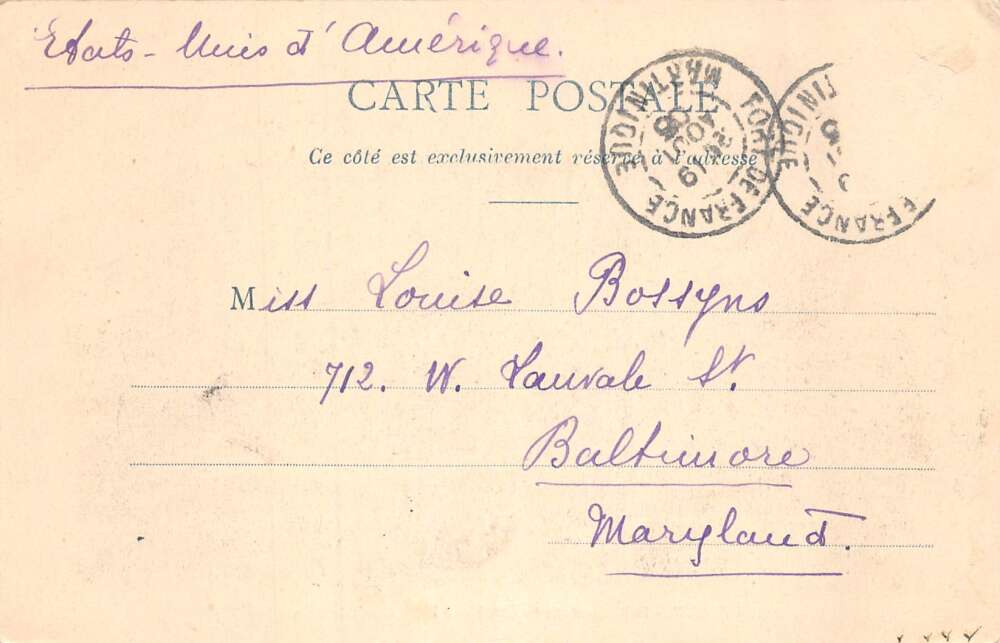 Etats-Unis d'Amérique.
CARTE POSTALE
Ce côté est exclusivement réservé à l'adresse
MARTINIQUE
FORT DE FRANCE
TINIQUE
E FRANCE
Miss Louise Bossyns
712. W. Lanvale St.
Baltimore
Maryland.